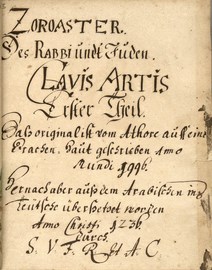 ZOROASTER.
Des RABBI undt Juden.
CLAVIS ARTIS
Erster Theil.
Das original ist vom Athore auff eine
Drachen-Haut geschrieben Anno
Mundi 1996.
Hernach aber aus dem Arabischen ins
Teutsche übersetzet worden
Anno Christi 1236
durch
S. V. F. R. A. C.